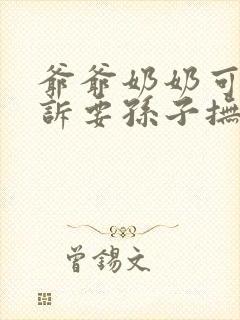 爺爺奶奶可
訴要孫子撫
曾錫文